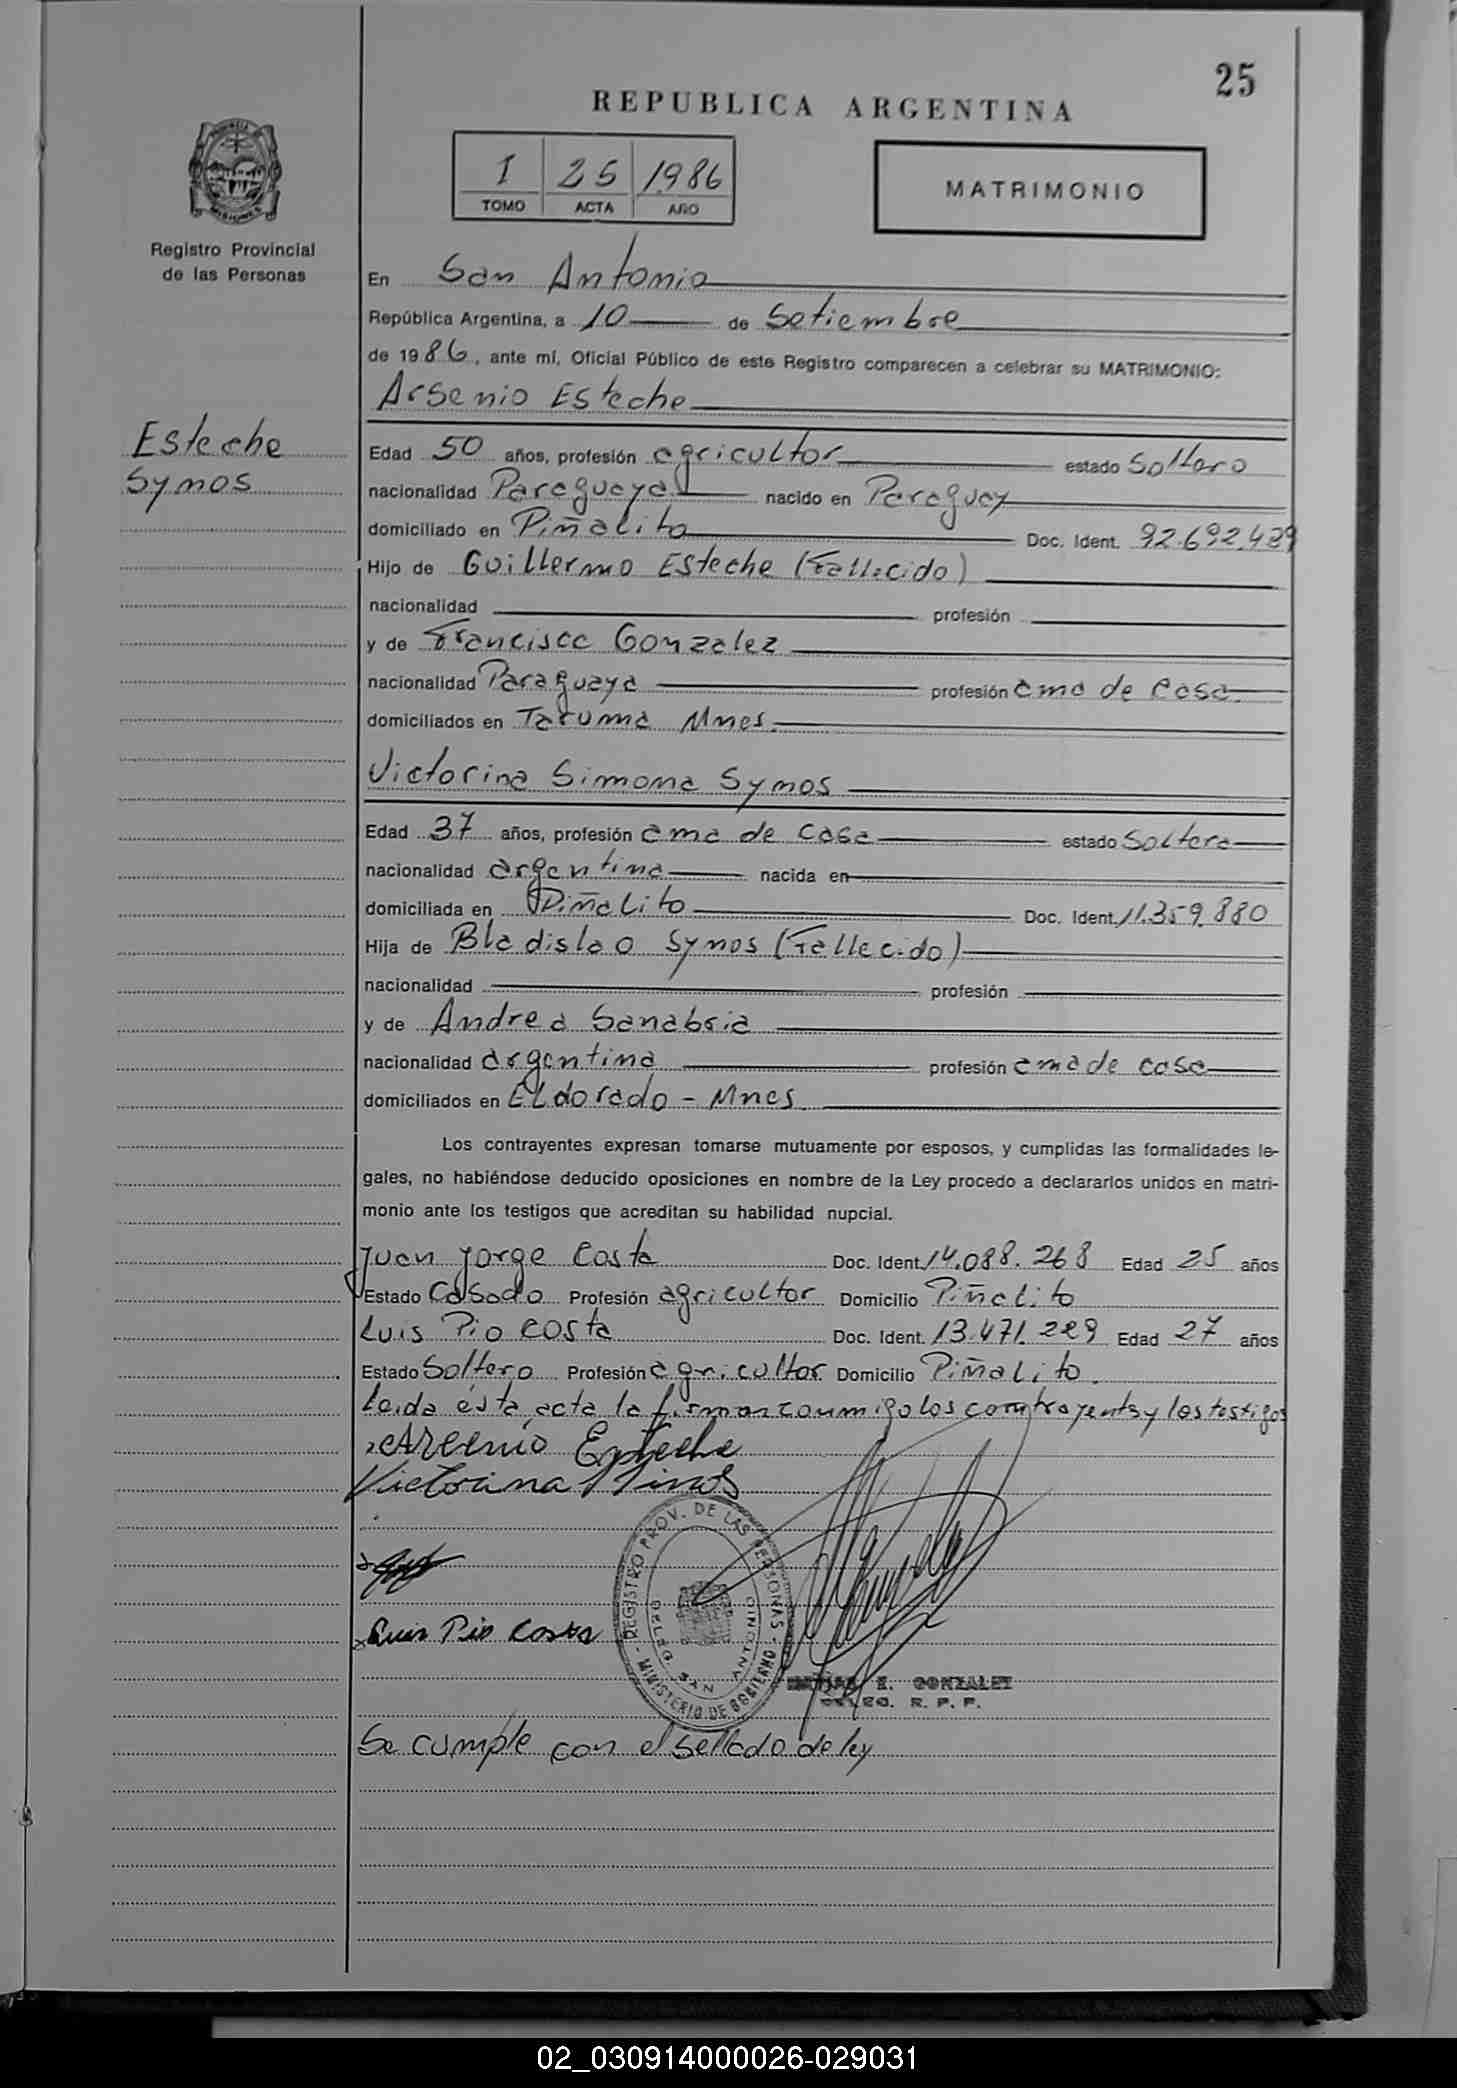 25
REPUBLICA ARGENTINA
I 25 1986
TOMO ACTA AÑO
MATRIMONIO
Registro Provincial
de las Personas
En San Antonio
República Argentina, a 10 de Setiembre
de 1986, ante mí, Oficial Público de este Registro comparecen a celebrar su MATRIMONIO:
Arsenio Esteche
Esteche
Symos
Edad 50 años, profesión agricultor estado Soltero
nacionalidad Paraguaya nacido en Paraguay
domiciliado en Piñalito Doc. Ident. 92.692.489
Hijo de Guillermo Esteche (Fallecido)
nacionalidad profesión
y de Francisca Gonzalez
nacionalidad Paraguaya profesión ama de casa
domiciliados en Taruma Mnes.
Victorina Simona Symos
Edad 37 años, profesión ama de casa estado Soltera
nacionalidad argentina nacida en
domiciliada en Piñalito Doc. Ident. 11.359.880
Hija de Bladislao Symos (Fallecido)
nacionalidad profesión
y de Andrea Sanabria
nacionalidad argentina profesión ama de casa
domiciliados en ELdorado - Mnes
Los contrayentes expresan tomarse mutuamente por esposos, y cumplidas las formalidades le-
gales, no habiéndose deducido oposiciones en nombre de la Ley procedo a declararlos unidos en matri-
monio ante los testigos que acreditan su habilidad nupcial.
Juan Jorge Costa Doc. Ident. 14.088.268 Edad 25 años
Estado Casado Profesión agricultor Domicilio Piñalito
Luis Pio Costa Doc. Ident. 13.471.229 Edad 27 años
Estado Soltero Profesión agricultor Domicilio Piñalito.
Leida ésta acta la firman conmigo los contrayentes y los testigos
Arsenio Esteche
Victorina Simos
REGISTRO PROV. DE LAS PERSONAS - MINISTERIO DE GOBIERNO -
DELEG. SAN ANTONIO
Luis Pio Costa
E. GONZALEZ
DELEG. R. P. P.
Se cumple con el sellado de ley
02_030914000026-029031